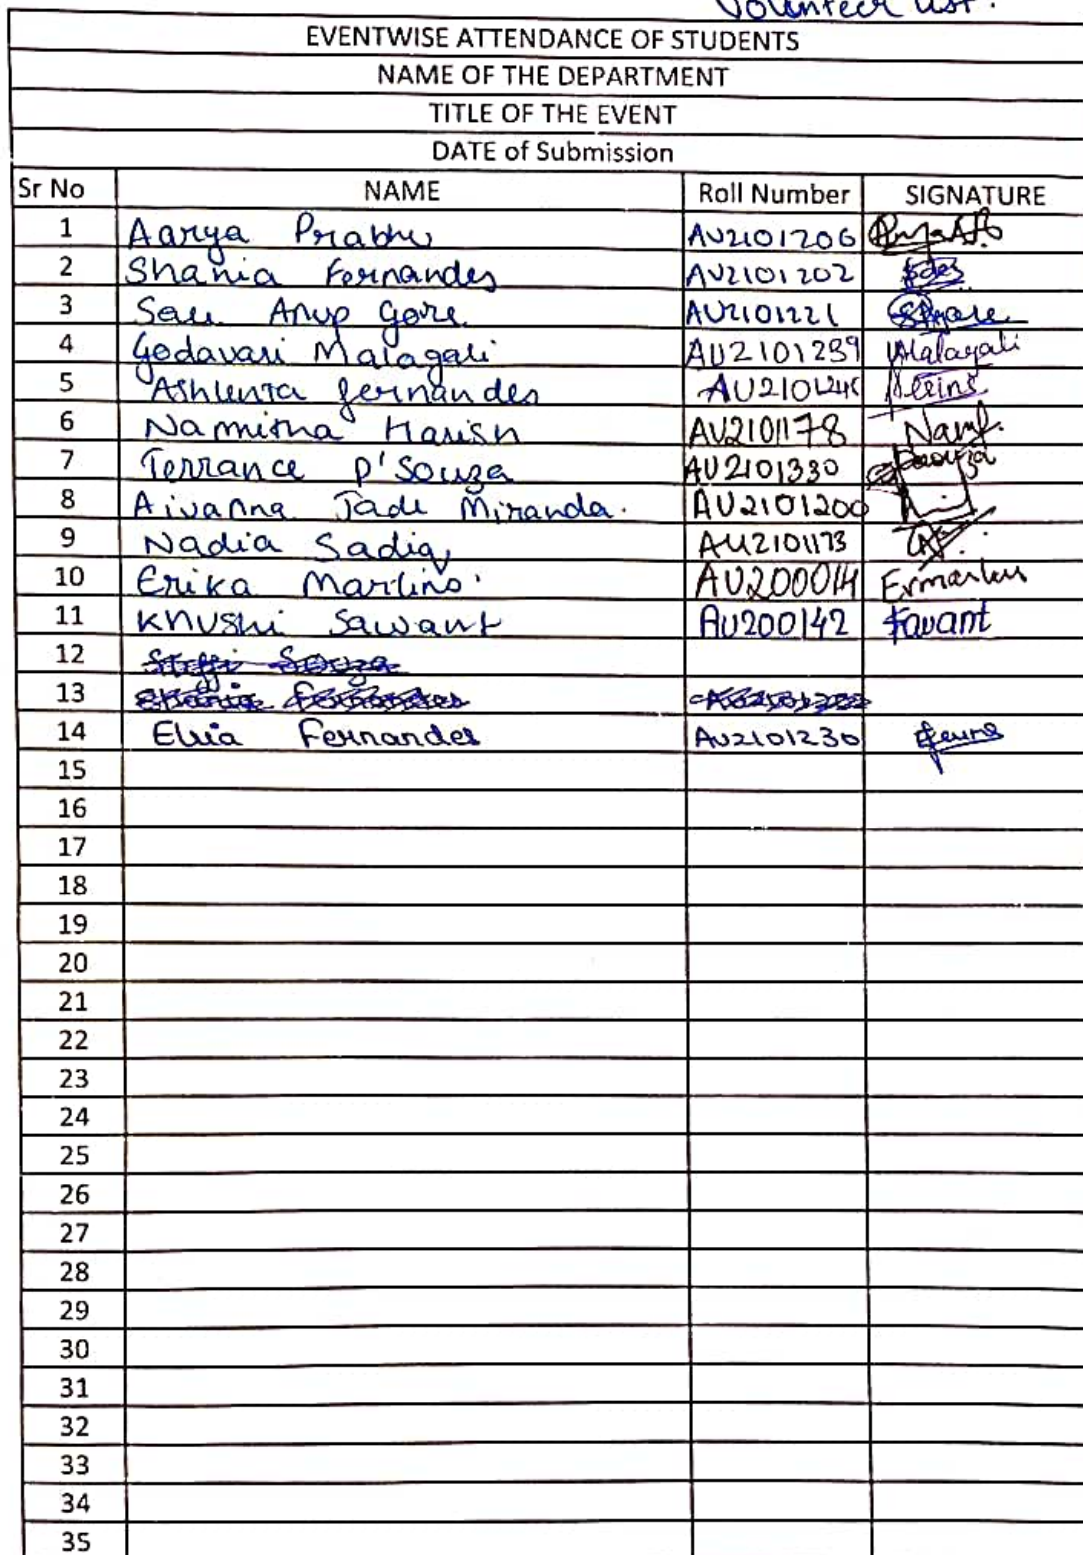 Volunteer list.
EVENTWISE ATTENDANCE OF STUDENTS
NAME OF THE DEPARTMENT
TITLE OF THE EVENT
DATE of Submission
Sr No NAME Roll Number SIGNATURE
1 Aarya Prabhu AU2101206
2 Shania Fernandes AU2101202
3 Anup Gore AU2101221
4 Godavari Malagali AU2101239 Malagali
5 Fernandes
6 Namitha Harish AU2101178
7 Terrance D'Souza AU2101330
8 Aivanna Jade Miranda. AU2101200
9 Nadia Sadiq AU2101173
10 Erika Martins
11 Khushi Sawant AU200142 Savant
12 Steffi Souza
13
14 Fernandes AU2101230
15
16
17
18
19
20
21
22
23
24
25
26
27
28
29
30
31
32
33
34
35